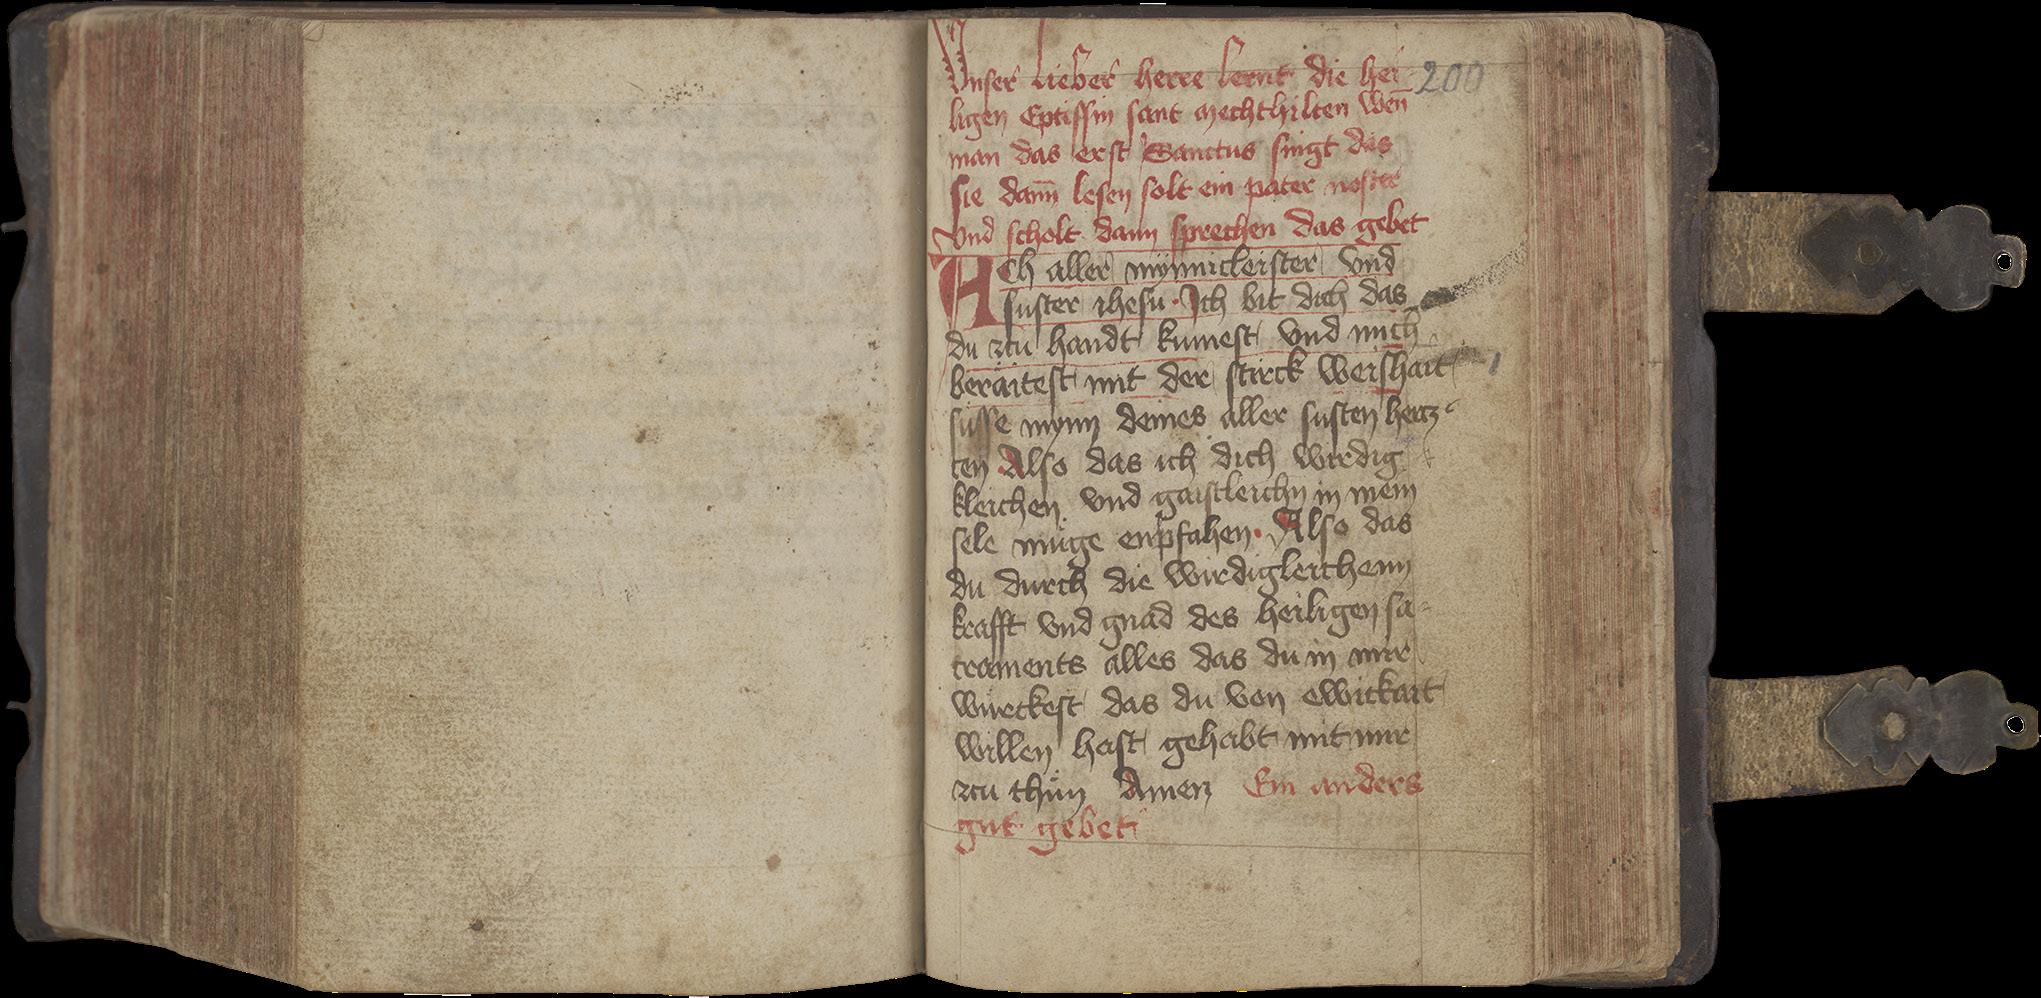 Vnser lieber herre lernt die hei 200
ligen Eptissin sant Mechthilten wen̄
man das erst Sanctus singt das
sie dann̄ lesen solt ein pater noster
vnd scholt dann sprechen das gebet
Ach aller mynnicleister vnd
suster ihesu · Ich bit dich das
du zcu handt kumest vnd mich
beraitest mit der stirck weishait
susse mynn deines aller susten hertz
ten Also das ich dich wirdig
kleichen vnd gaistleichn in mein
sele muge enpfahen · Also das
du durch die wirdigleichenn
krafft vnd gnad des heiligen sa-
craments alles das du in mir
wurckest das du von ewickait
willen hast gehabt mit mir
zcu thun Amen Ein anders
gut gebet